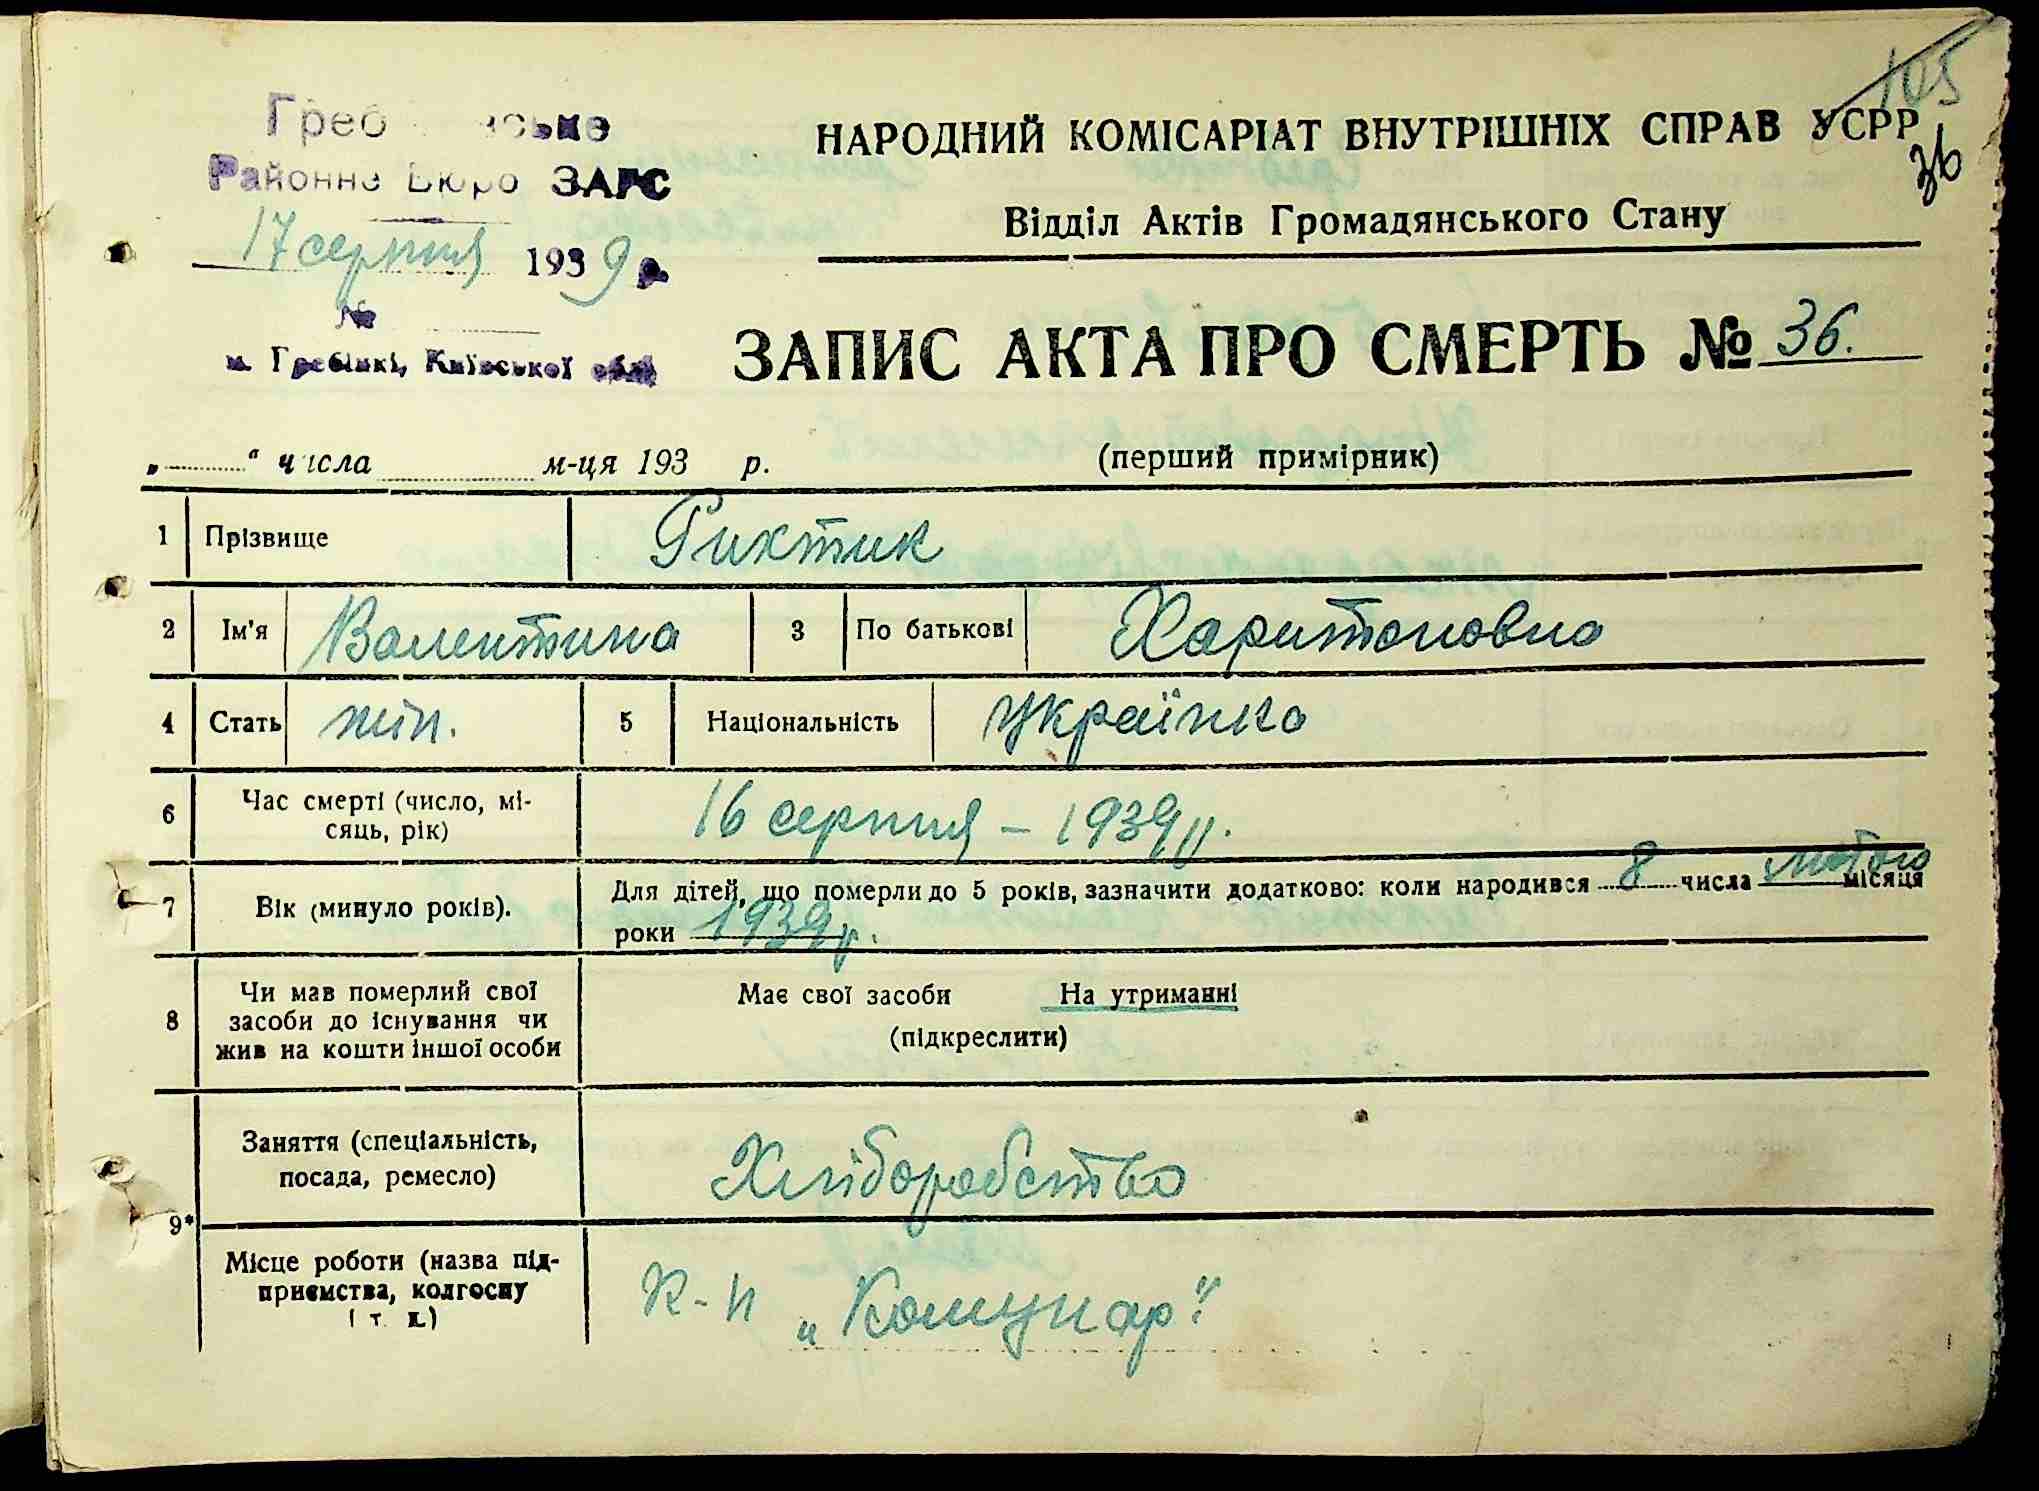 105
36
Гребінківське
Районне Бюро ЗАГС
17 серпня 1939 р.
№
м. Гребінкі, Київської обл.
НАРОДНИЙ КОМІСАРІАТ ВНУТРІШНІХ СПРАВ УСРР
Відділ Актів Громадянського Стану
ЗАПИС АКТА ПРО СМЕРТЬ № 36.
„ “ числа м-ця 193 р. (перший примірник)
1 Прізвище Гихтик
2 Ім'я Валентина 3 По батькові Харитоновна
4 Стать жін. 5 Національність Українка
6 Час смерті (число, мі-
сяць, рік) 16 серпня – 1939 р.
7 Вік (минуло років). Для дітей, що померли до 5 років, зазначити додатково: коли народився 8 числа лютого місяця
роки 1939 р.
8 Чи мав померлий свої
засоби до існування чи
жив на кошти іншої особи
Має свої засоби На утриманні
(підкреслити)
9*
Заняття (спеціальність,
посада, ремесло) Хліборобство
Місце роботи (назва під-
приємства, колгоспу
і т. д.) К-п „Комунар"